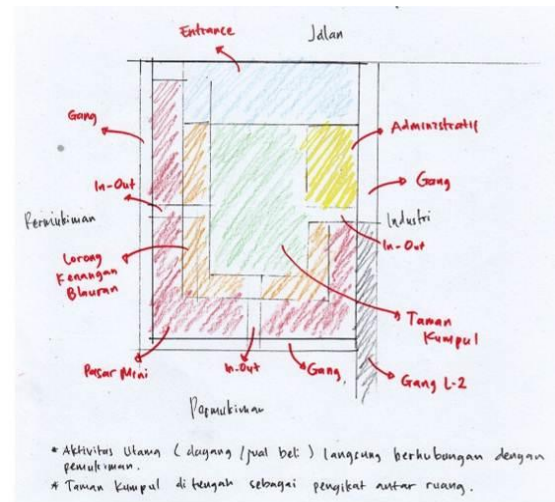 Entrance
Jalan
Gang
Administratif
In-Out
Gang
Permukiman
Industri
In-Out
Lorong
Kenangan
Blauran
Taman
Kumpul
Pasar Mini
In-Out
Gang
Gang L-2
Permukiman
* Aktivitas Utama ( dagang / jual beli ) langsung berhubungan dengan
pemukiman.
* Taman Kumpul di tengah sebagai pengikat antar ruang.